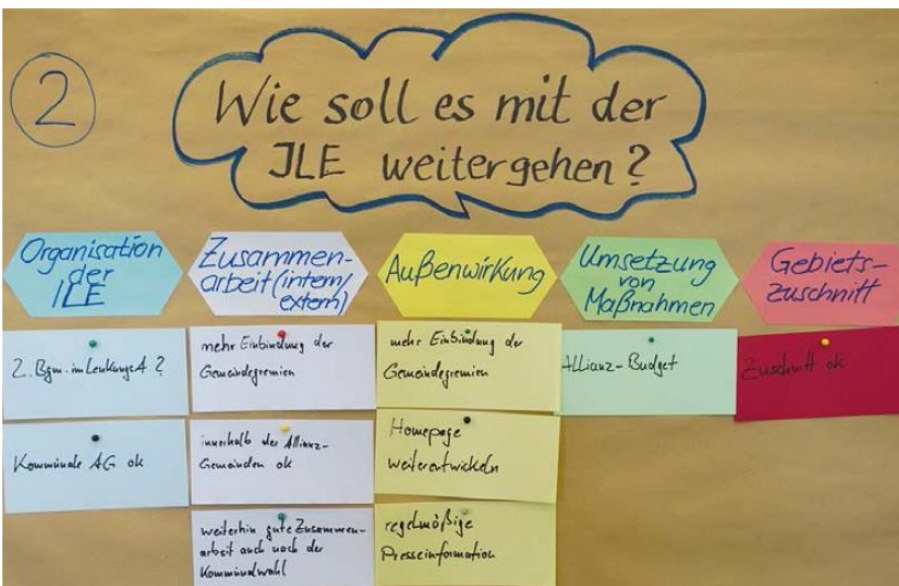 2
Wie soll es mit der
ILE weitergehen?
Organisation
der
ILE
2. Bgm. im LenkungsA ?
Kommunale AG ok
Zusammen-
arbeit (intern/
extern)
mehr Einbindung der
Gemeindegremien
innerhalb der Allianz-
Gemeinden ok
weiterhin gute Zusammen-
arbeit auch nach der
Kommunalwahl
Außenwirkung
mehr Einbindung der
Gemeindegremien
Homepage
weiterentwickeln
regelmäßige
Presseinformation
Umsetzung
von
Maßnahmen
Allianz-Budget
Gebiets-
zuschnitt
Zuschnitt ok